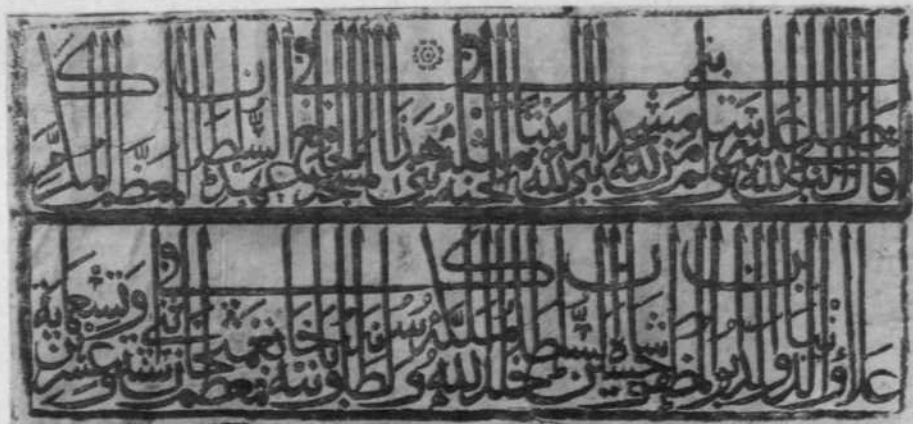 قال النبي صلى الله تعالى عليه وسلم من بنى لله مسجدا بنى الله له بيتا مثله في الجنة بنى هذا المسجد الجامع في عهد السلطان المعظم المكرم
علاؤ الدنيا والدين ابو المظفر حسين شاه السلطان خلد الله ملكه وسلطانه خان معظم خان في سنة وعشرين وتسعماية